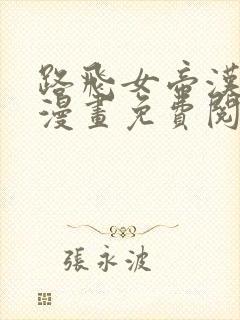 路飛女帝漢
漫畫免費閱
張永波